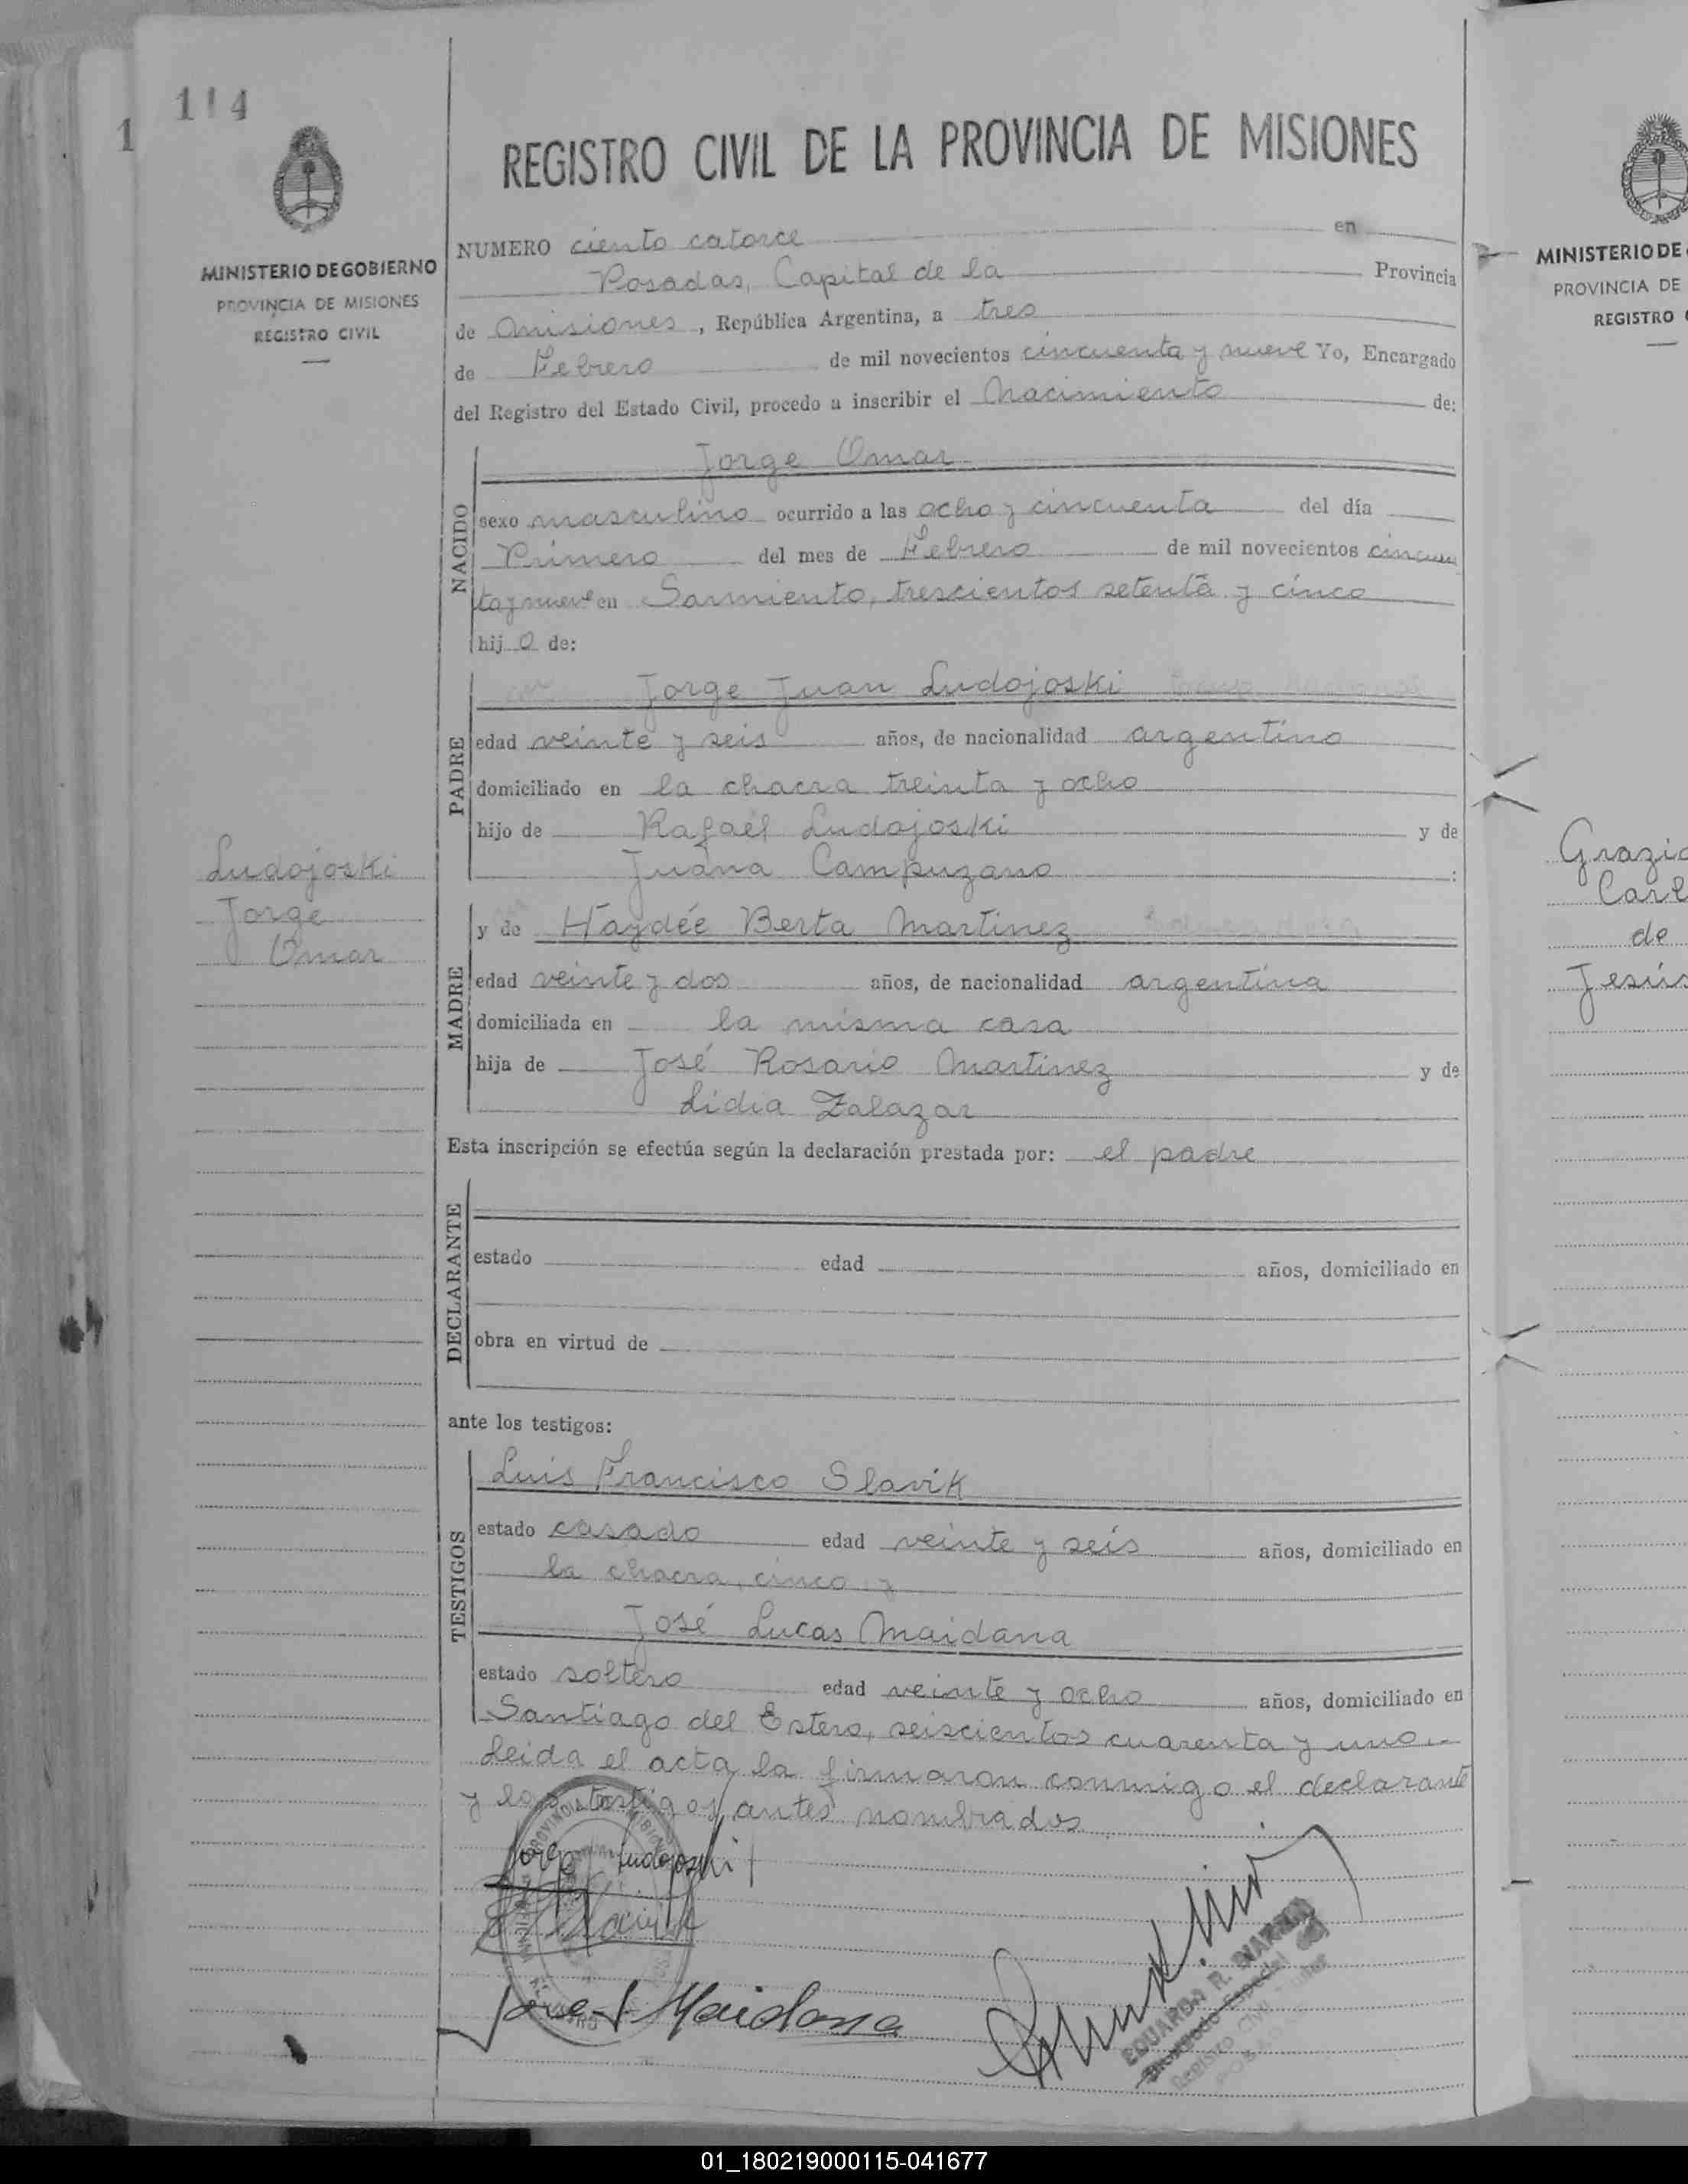 114
1
MINISTERIO DE GOBIERNO
PROVINCIA DE MISIONES
REGISTRO CIVIL
Ludojoski
Jorge
Omar
REGISTRO CIVIL DE LA PROVINCIA DE MISIONES
NUMERO ciento catorce en
Posadas, Capital de la Provincia
de Misiones, República Argentina, a tres
de Febrero de mil novecientos cincuenta y nueve Yo, Encargado
del Registro del Estado Civil, procedo a inscribir el Nacimiento de:
NACIDO
Jorge Omar
sexo masculino ocurrido a las ocho y cincuenta del día
Primero del mes de Febrero de mil novecientos cincuen
ta y nueve en Sarmiento, trescientos setenta y cinco
hijo de:
PADRE
Jorge Juan Ludojoski
edad veinte y seis años, de nacionalidad argentino
domiciliado en la chacra treinta y ocho
hijo de Rafael Ludojoski y de
Juana Campuzano :
MADRE
y de Haydée Berta Martinez
edad veinte y dos años, de nacionalidad argentina
domiciliada en la misma casa
hija de José Rosario Martinez y de
Lidia Zalazar
Esta inscripción se efectúa según la declaración prestada por: el padre
DECLARANTE
estado edad años, domiciliado en
obra en virtud de
ante los testigos:
TESTIGOS
Luis Francisco Slavik
estado casado edad veinte y seis años, domiciliado en
la chacra, cinco y
José Lucas Maidana
estado soltero edad veinte y ocho años, domiciliado en
Santiago del Estero, seiscientos cuarenta y uno..
Leida el acta la firmaron conmigo el declarante
y los testigos antes nombrados.
Jorge Ludojoski
José L Maidana
EDUARDA R.
Encargado Especial
Registro Civil
MINISTERIO DE
PROVINCIA DE
REGISTRO
Grazio
Carl
de
Jesús
01_180219000115-041677